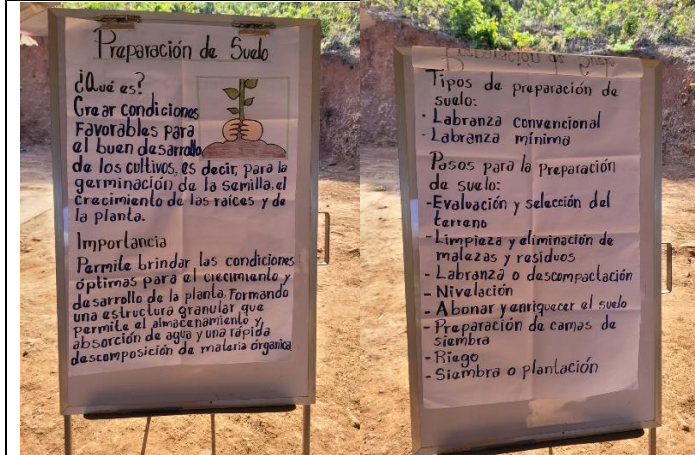 Preparación de Suelo
¿Qué es?
Crear condiciones
Favorables para
el buen desarrollo
de los cultivos, es decir, para la
germinación de la semilla, el
crecimiento de las raíces y de
la planta.
Importancia
Permite brindar las condiciones
óptimas para el crecimiento y
desarrollo de la planta. Formando
una estructura granular que
permite el almacenamiento y
absorción de agua y una rápida
descomposición de materia órganica
Tipos de preparación de
suelo:
- Labranza convencional
- Labranza mínima
Pasos para la preparación
de suelo:
- Evaluación y selección del
terreno
- Limpieza y eliminación de
malezas y residuos
- Labranza o descompactación
- Nivelación
- Abonar y enriquecer el suelo
- Preparación de camas de
siembra
- Riego
- Siembra o plantación